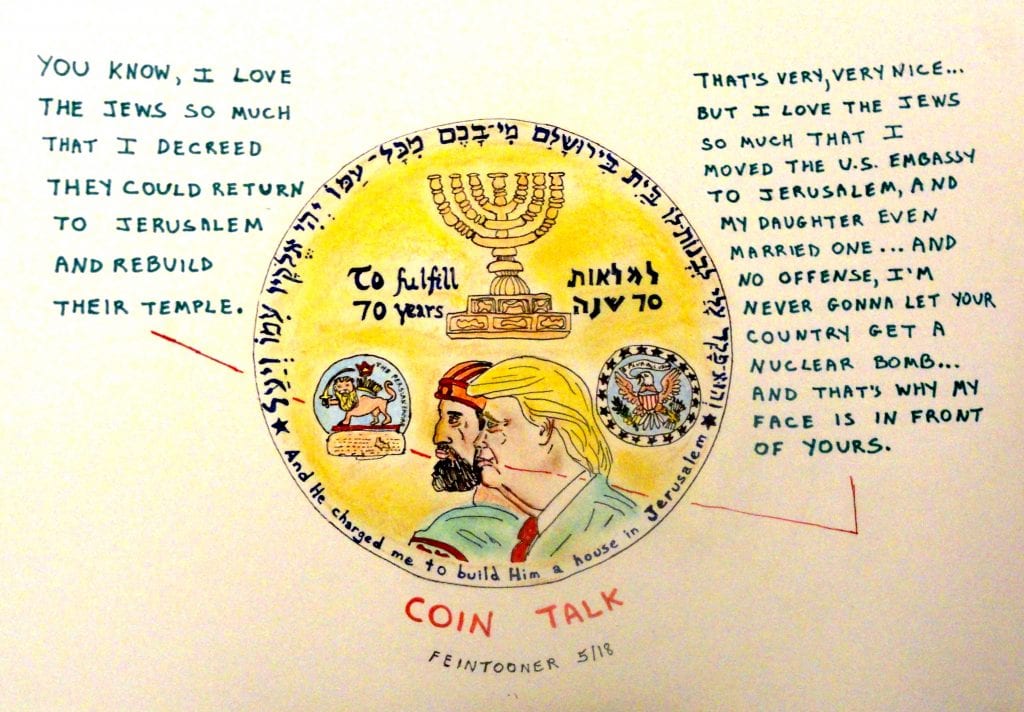 YOU KNOW, I LOVE
THE JEWS SO MUCH
THAT I DECREED
THEY COULD RETURN
TO JERUSALEM
AND REBUILD
THEIR TEMPLE.
THAT'S VERY, VERY NICE...
BUT I LOVE THE JEWS
SO MUCH THAT I
MOVED THE U.S. EMBASSY
TO JERUSALEM, AND
MY DAUGHTER EVEN
MARRIED ONE... AND
NO OFFENSE, I'M
NEVER GONNA LET YOUR
COUNTRY GET A
NUCLEAR BOMB...
AND THAT'S WHY MY
FACE IS IN FRONT
OF YOURS.
והוא פקד עלי לבנות־לו בית בירושלים מי־בכם מכל־עמו יהי אלקיו עמו ויעל
To fulfill
70 years
למלאות
70 שנה
THE PERSIAN
And He charged me to build Him a house in Jerusalem
COIN TALK
FEINTOONER 5/18